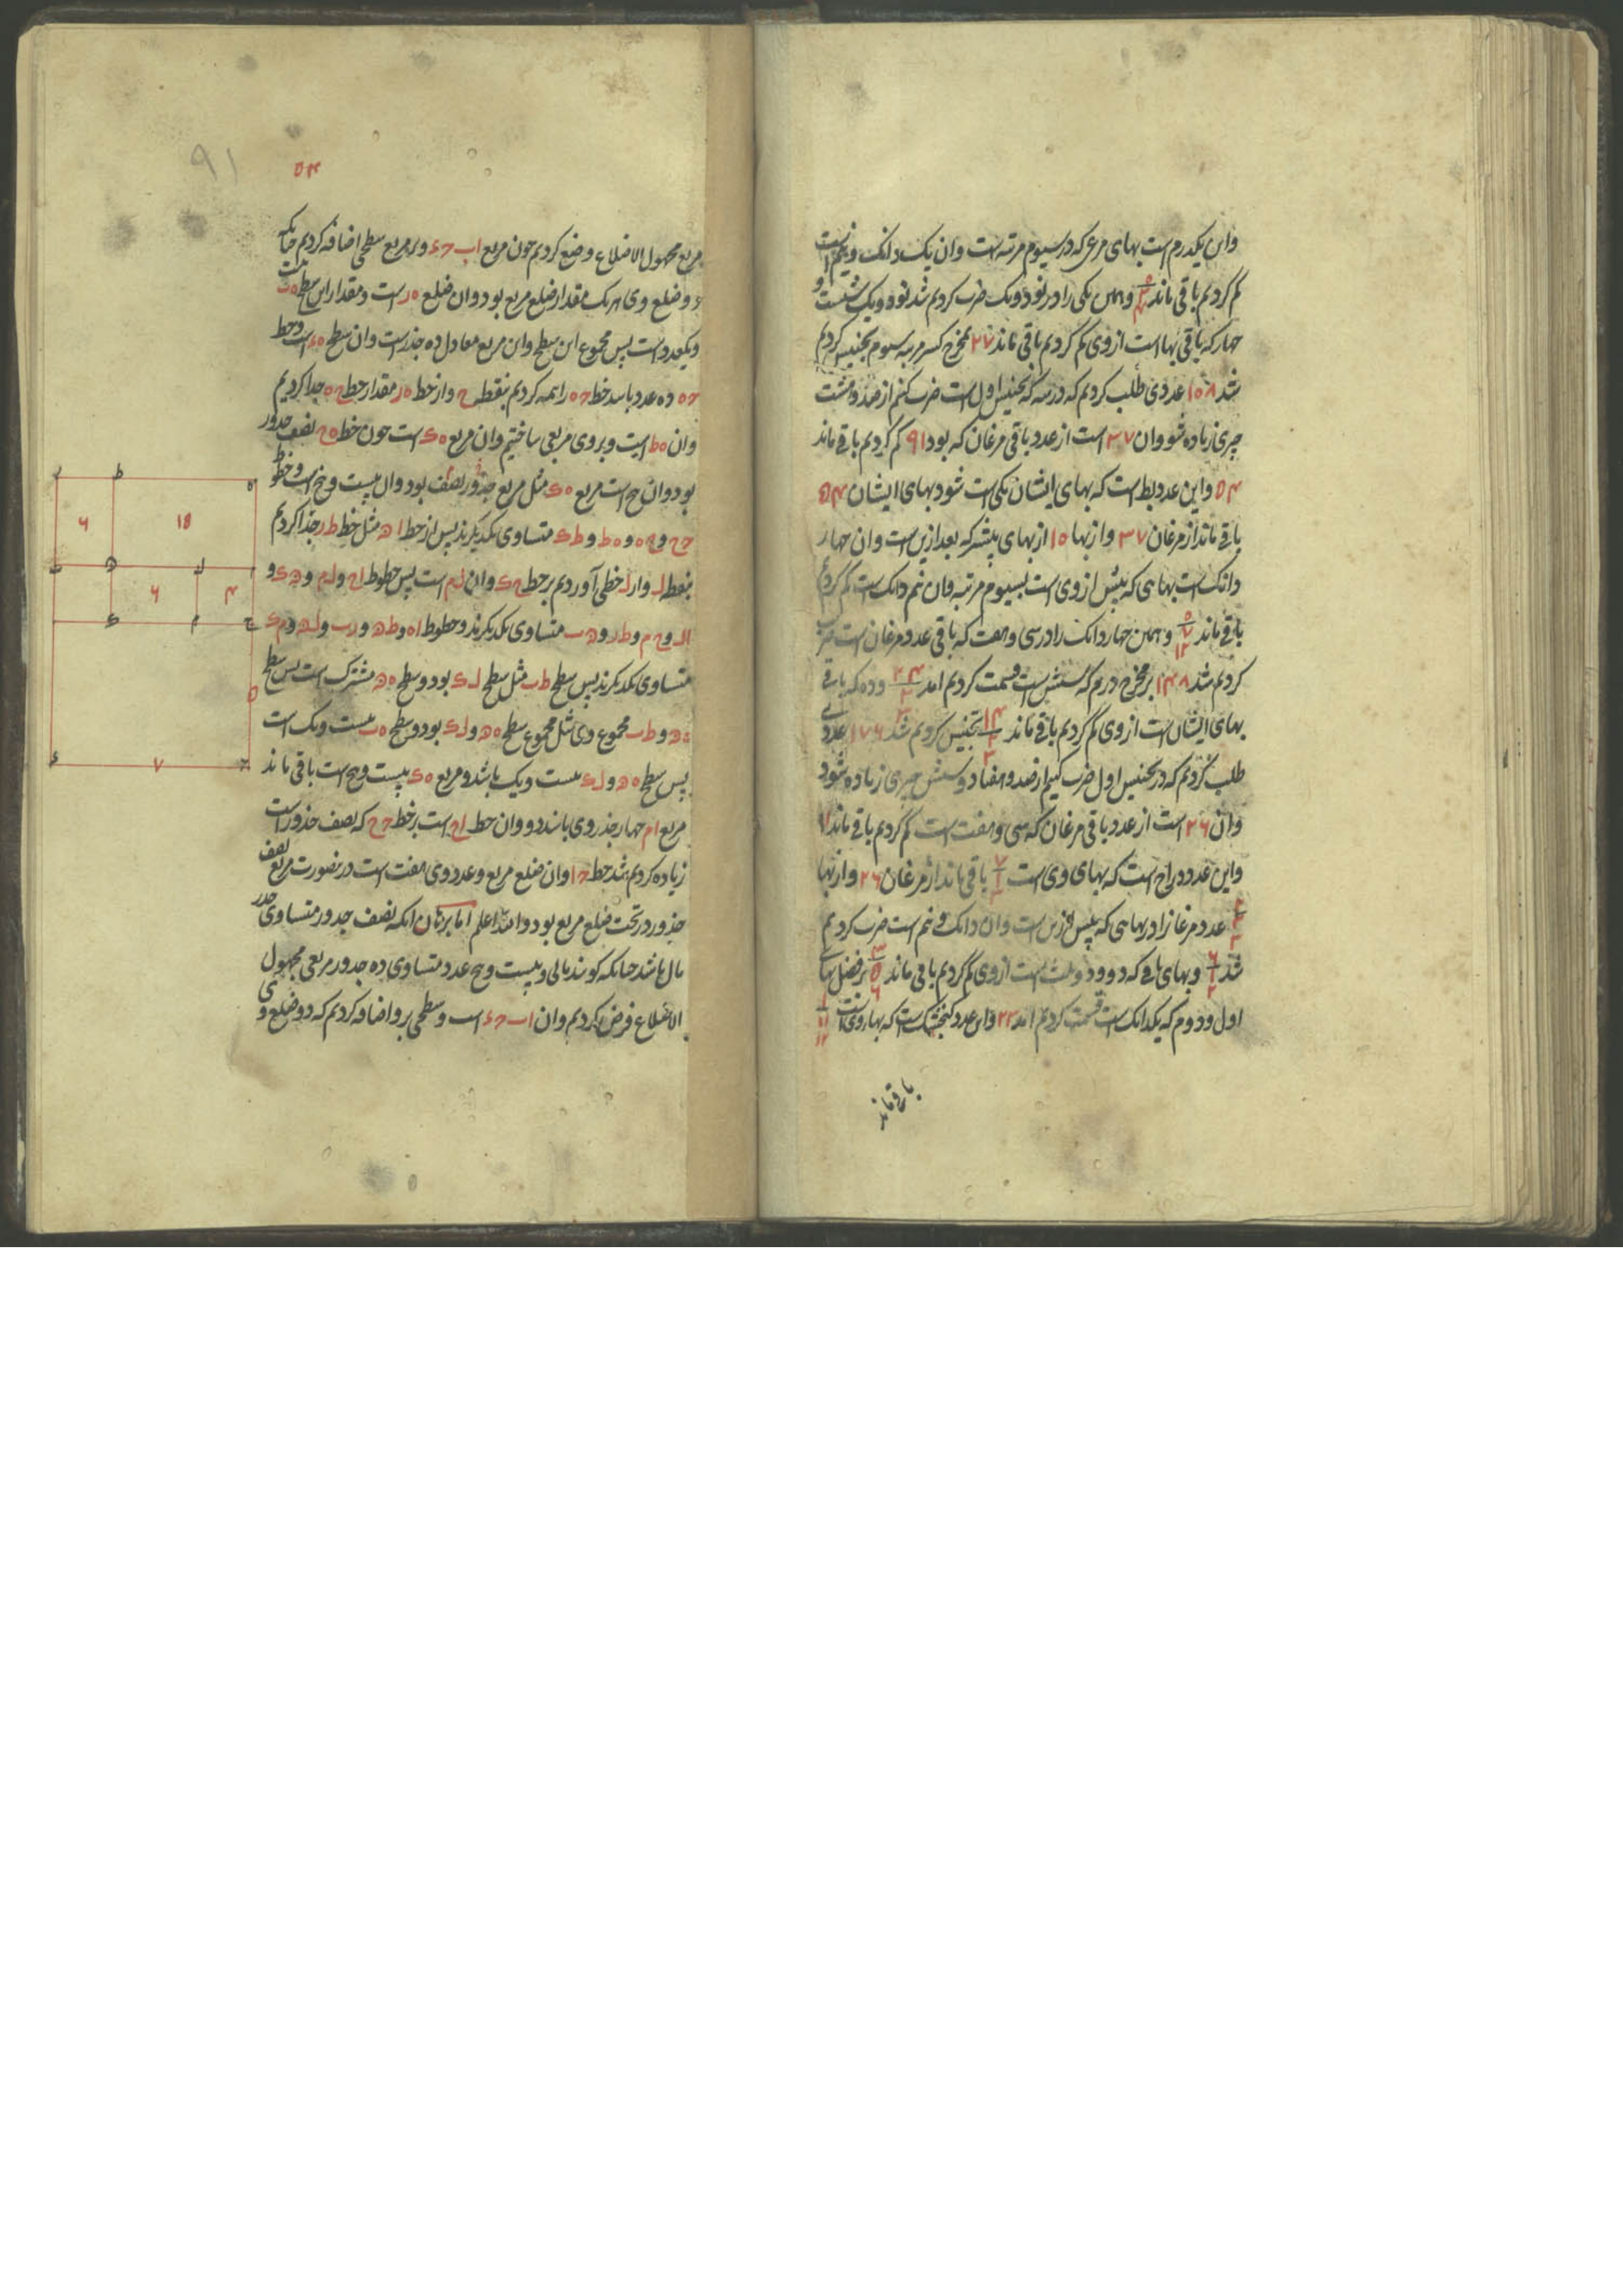 واین یکدرم است بهای مرغی که در سیوم مرتبه است وان یک دانک و نیم است
کم کردیم باقی ماند و همین یکی را در نود و یک ضرب کردیم شد نود و یک شصت و
چهار که باقی بها است از وی کم کردیم باقی ماند ۲۷ مخرج کسر مرتبه سیوم تجنیس کردیم
شد ۱۰۸ عددی طلب کردیم که در سه که تجنیس اول است ضرب کنیم از صد و هشت
چیزی زیاده شود وان ۳۷ است از عدد باقی مرغان که بود ۹۱ کم کردیم باقی ماند
۵۴ واین عدد بط است که بهای ایشان یکی است شود بهای ایشان ۵۴
باقی ماند از مرغان ۳۷ و از بها ۱۰ از بهای پیشتر که بعد ازین است وان چهار
دانک است بهایی که پیش از وی است بسیوم مرتبه وان نیم دانک است کم کردیم
باقی ماند و همین چهار دانک را در سی و هفت که باقی عدد مرغان است ضرب
کردیم شد ۱۴۸ بر مخرج درم که شش است قسمت کردیم امد و ده که باقی
بهای ایشان است از وی کم کردیم باقی ماند تجنیس کردیم شد ۱۷۶ عددی
طلب کردیم که در تجنیس اول ضرب کنیم از صد و هفتاد و شش چیزی زیاده شود
وان ۲۶ است از عدد باقی مرغان که سی و هفت است کم کردیم باقی ماند ۱۱
واین عدد دراج است که بهای وی است باقی ماند از مرغان ۲۶ و از بها
عدد مرغانرا در بهایی که پیش ازین است وان دانک و نیم است ضرب کردیم
شد و بهای باقی که دو و دو ثلث است از وی کم کردیم باقی ماند بر فضل بهای
اول و دوم که یکدانک است قسمت کردیم امد ۲۲ واین عدد کنجشک است که بها وی است
باقی ماند
۵۴
۹۱
مربع مجهول الاضلاع وضع کردیم چون مربع اب حء و بر مربع سطحی اضافه کردیم چنانکه
دو ضلع وی هر یک مقدار ضلع مربع بود وان ضلع ه ر است و مقدار این سطح ه ب بیست
و یکعدد است پس مجموع این سطح واین مربع معادل ده جذر است وان سطح ه ء است و خط
ح ه ده عدد باشد خط ح ه را نیمه کردیم بنقطه ح و از خط ه ر مقدار خط ح ه جدا کردیم
وان ه ط است و بر وی مربعی ساختیم وان مربع ه ک است چون خط ه ح نصف جذور
بود وان پنج است مربع ه ک مثل مربع جذور نصف بود وان بیست و پنج است و خطوط
ح ح و ح ه و ه ط و ط ک متساوی یکدیگرند پس از خط ا ه مثل خط ط ر جدا کردیم
بنقطه ل و از ل خطی آوردیم بر خط ح ک وان ل م است پس خطوط ا ح و ل م و ه ک و
ال و ح م و ط ر و ه ب متساوی یکدیگرند و خطوط ا ه و ط ه و ر ب و ل ه و م ک
متساوی یکدیگرند پس سطح ط ب مثل سطح ل ک بود و سطح ه ه مشترک است پس سطح
ه ه و ط ب مجموع وی مثل مجموع سطح ه ه و ل ک بود و سطح ه ب بیست و یک است
پس سطح ه ه و ل ک بیست و یک باشد و مربع ه ک بیست و پنج است باقی ماند
مربع ا م چهار جذر وی باشد دو وان خط ا ح است بر خط ح ح که نصف جذور است
زیاده کردیم شد خط ح ا وان ضلع مربع و عدد وی هفت است درینصورت مربع نصف
جذور در تحت ضلع مربع بود والله اعلم اما برهان انکه نصف جذور متساوی جذر
مال باشد چنانکه گویند مالی و بیست و پنج عدد متساوی ده جذور مربعی مجهول
الاضلاع فرض کردیم وان اب حء است و سطحی برو اضافه کردیم که دو ضلع وی
ر ط ه
۶ ۱۵
ب ه ل ا
۶ ۴
ک م ح
۵
ء ۷ ح